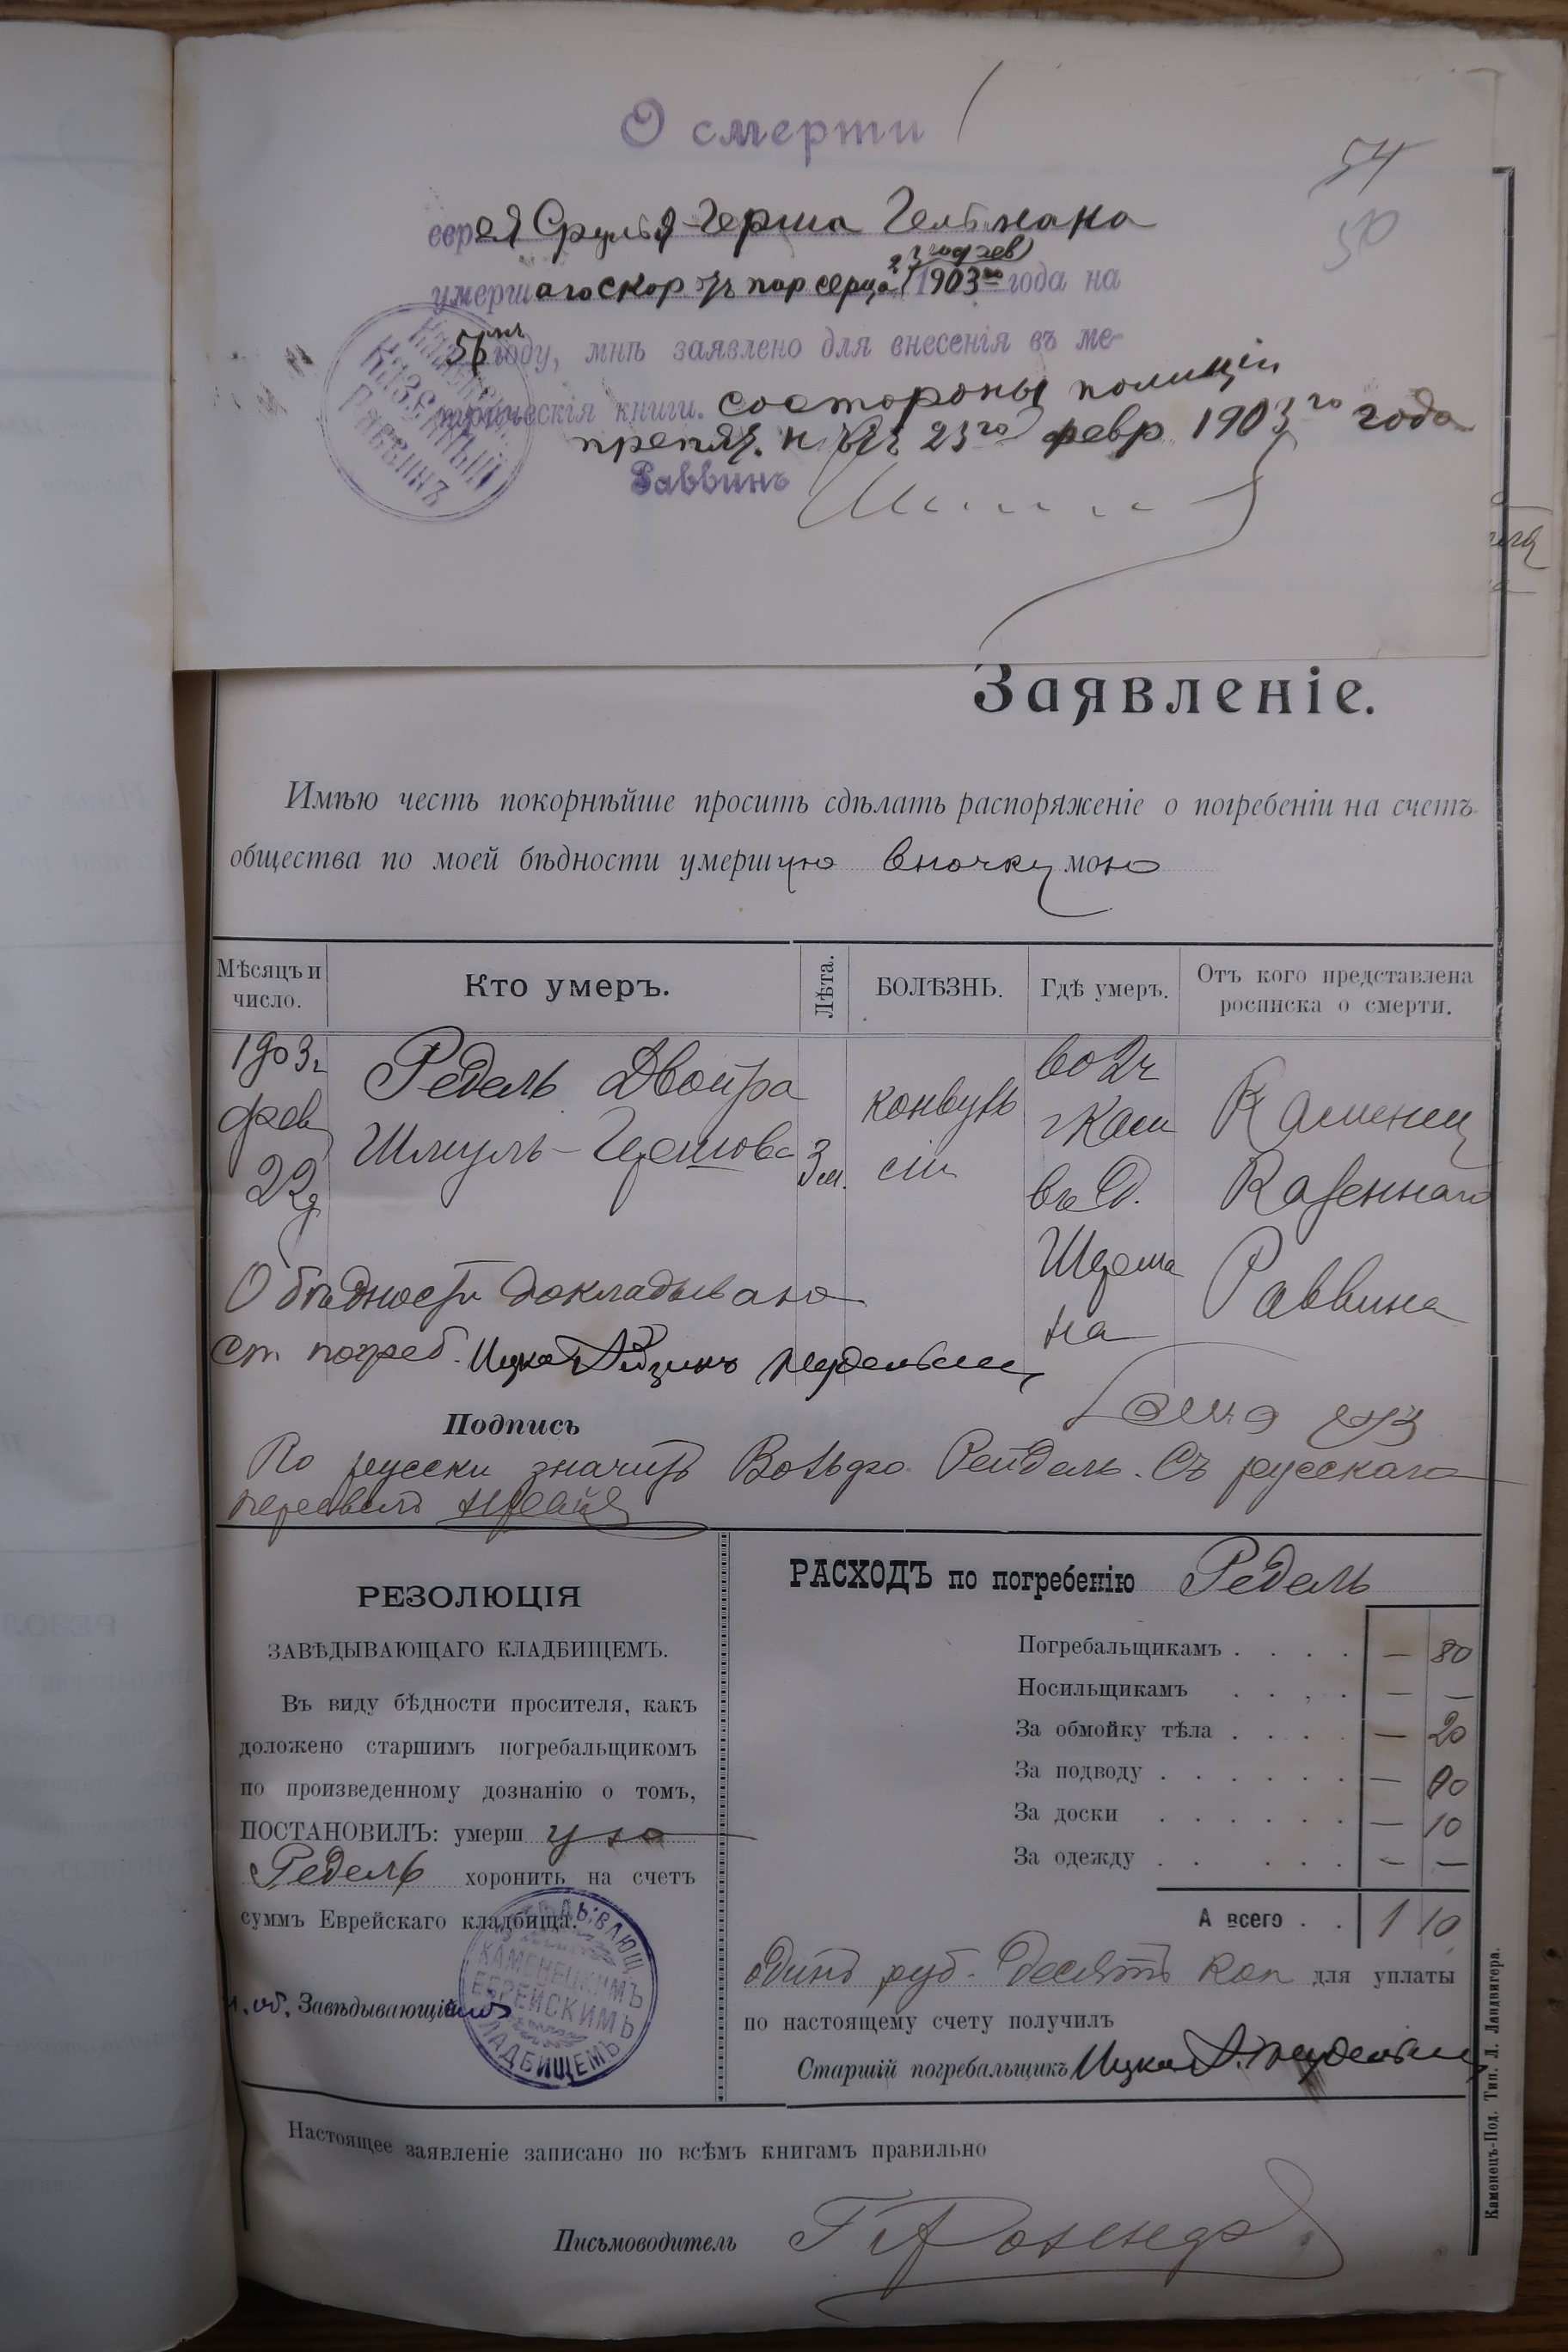 О смерти
54
еврея Сруль-Герша Гельмана
50
23 фев
умершаго скор пар серца 1903го года на
56 году, мнѣ заявлено для внесенія въ ме-
трическія книги. состороны полиціи
препят. нѣтъ 23го февр 1903го года
Раввинъ
Казенный
Раввинъ
Заявленіе.
Имѣю честь покорнѣйше просить сдѣлать распоряженіе о погребеніи на счетъ
общества по моей бѣдности умершую вночку мою
Мѣсяцъ и число.
Кто умеръ.
Лѣта.
БОЛѢЗНЬ.
Гдѣ умеръ.
Отъ кого представлена росписка о смерти.
1903г
фев
22д
Редель Двойра
Шмуль-Гершова
3 м.
конвуль
сіи
во 2ч
г Кам
въ д.
Шерма
на
Каменец
Казеннаго
Раввина
О бѣдности докладываю
Ст. погреб. Ицко
Подпись
По русски значитъ Вольфо Рейдель. Съ русскаго
перевелъ
РЕЗОЛЮЦІЯ
ЗАВѢДЫВАЮЩАГО КЛАДБИЩЕМЪ.
Въ виду бѣдности просителя, какъ
доложено старшимъ погребальщикомъ
по произведенному дознанію о томъ,
ПОСТАНОВИЛЪ: умершую
Редель хоронить на счетъ
суммъ Еврейскаго кладбища.
И. об. Завѣдывающій
ЗАВѢДЫВАЮЩ
КАМЕНЕЦКИМЪ
ЕВРЕЙСКИМЪ
КЛАДБИЩЕМЪ
РАСХОДЪ по погребенію Редель
Погребальщикамъ . . . . — 80
Носильщикамъ . . . . — —
За обмойку тѣла . . . . — 20
За подводу . . . . . . —
За доски . . . . . . — 10
За одежду . . . . . . — —
А всего . . 1 10
Одинъ руб. десять коп для уплаты
по настоящему счету получилъ
Старшій погребальщикъ Ицко
Настоящее заявленіе записано по всѣмъ книгамъ правильно
Письмоводитель
Каменецъ-Под. Тип. Л. Ландвигера.